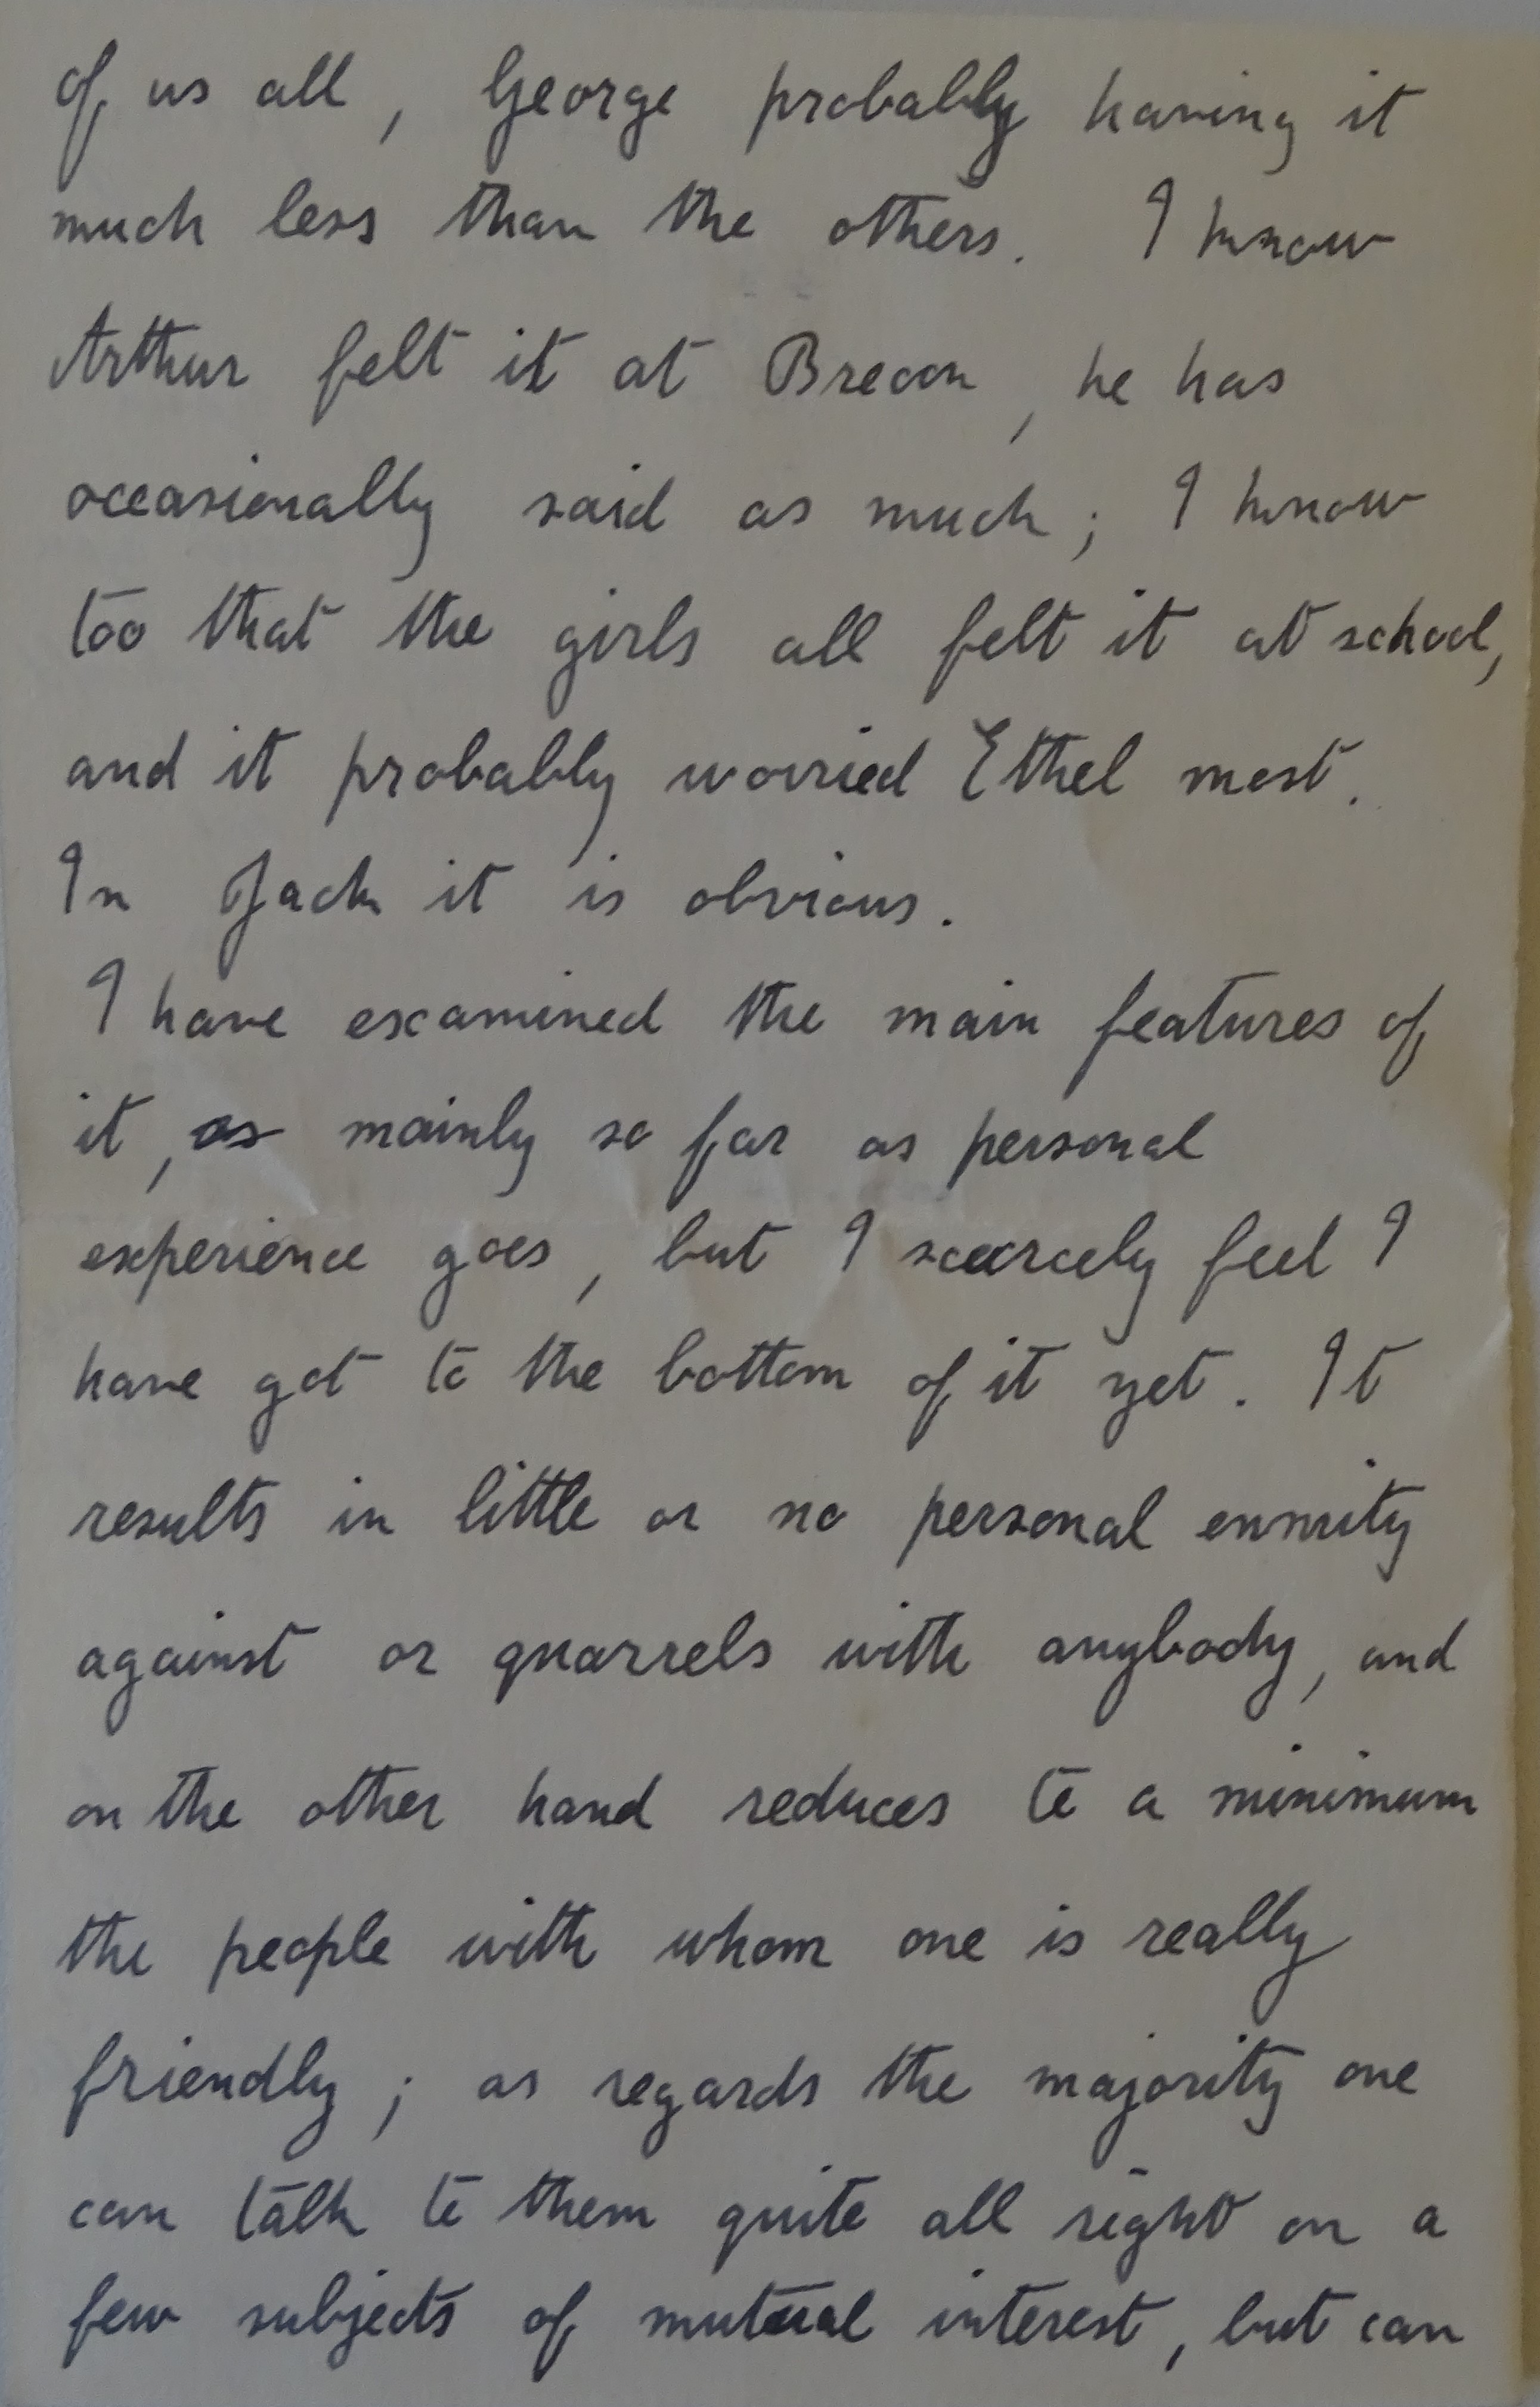 of us all, George probably having it
much less than the others. I know
Arthur felt it at Brecon, he has
occasionally said as much; I know
too that the girls all felt it at school,
and it probably worried Ethel most.
In Jack it is obvious.
I have examined the main features of
it, as mainly so far as personal
experience goes, but I scarcely feel I
have got to the bottom of it yet. It
results in little or no personal enmity
against or quarrels with anybody, and
on the other hand reduces to a minimum
the people with whom one is really
friendly; as regards the majority one
can talk to them quite all right on a
few subjects of mutual interest, but can